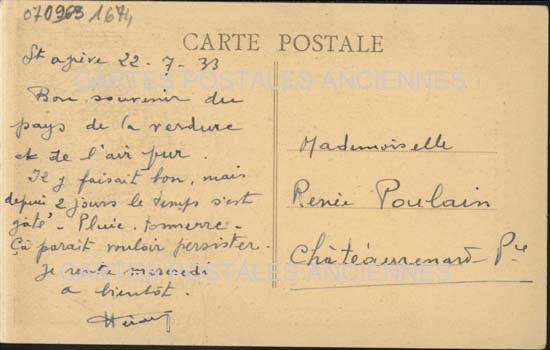 070963 1674
CARTE POSTALE
St 22-7-33
Bon souvenir du
pays de la verdure
et de l'air pur.
Il y faisait bon, mais
depuis 2 jours le temps s'est
gâté - Pluie, tonnerre -
Çà parait vouloir persister.
Je rentre mercredi
a bientôt.
Mademoiselle
Renée Poulain
Châteaurenard-Pce
CARTES POSTALES ANCIENNES
CARTES POSTALES ANCIENNES